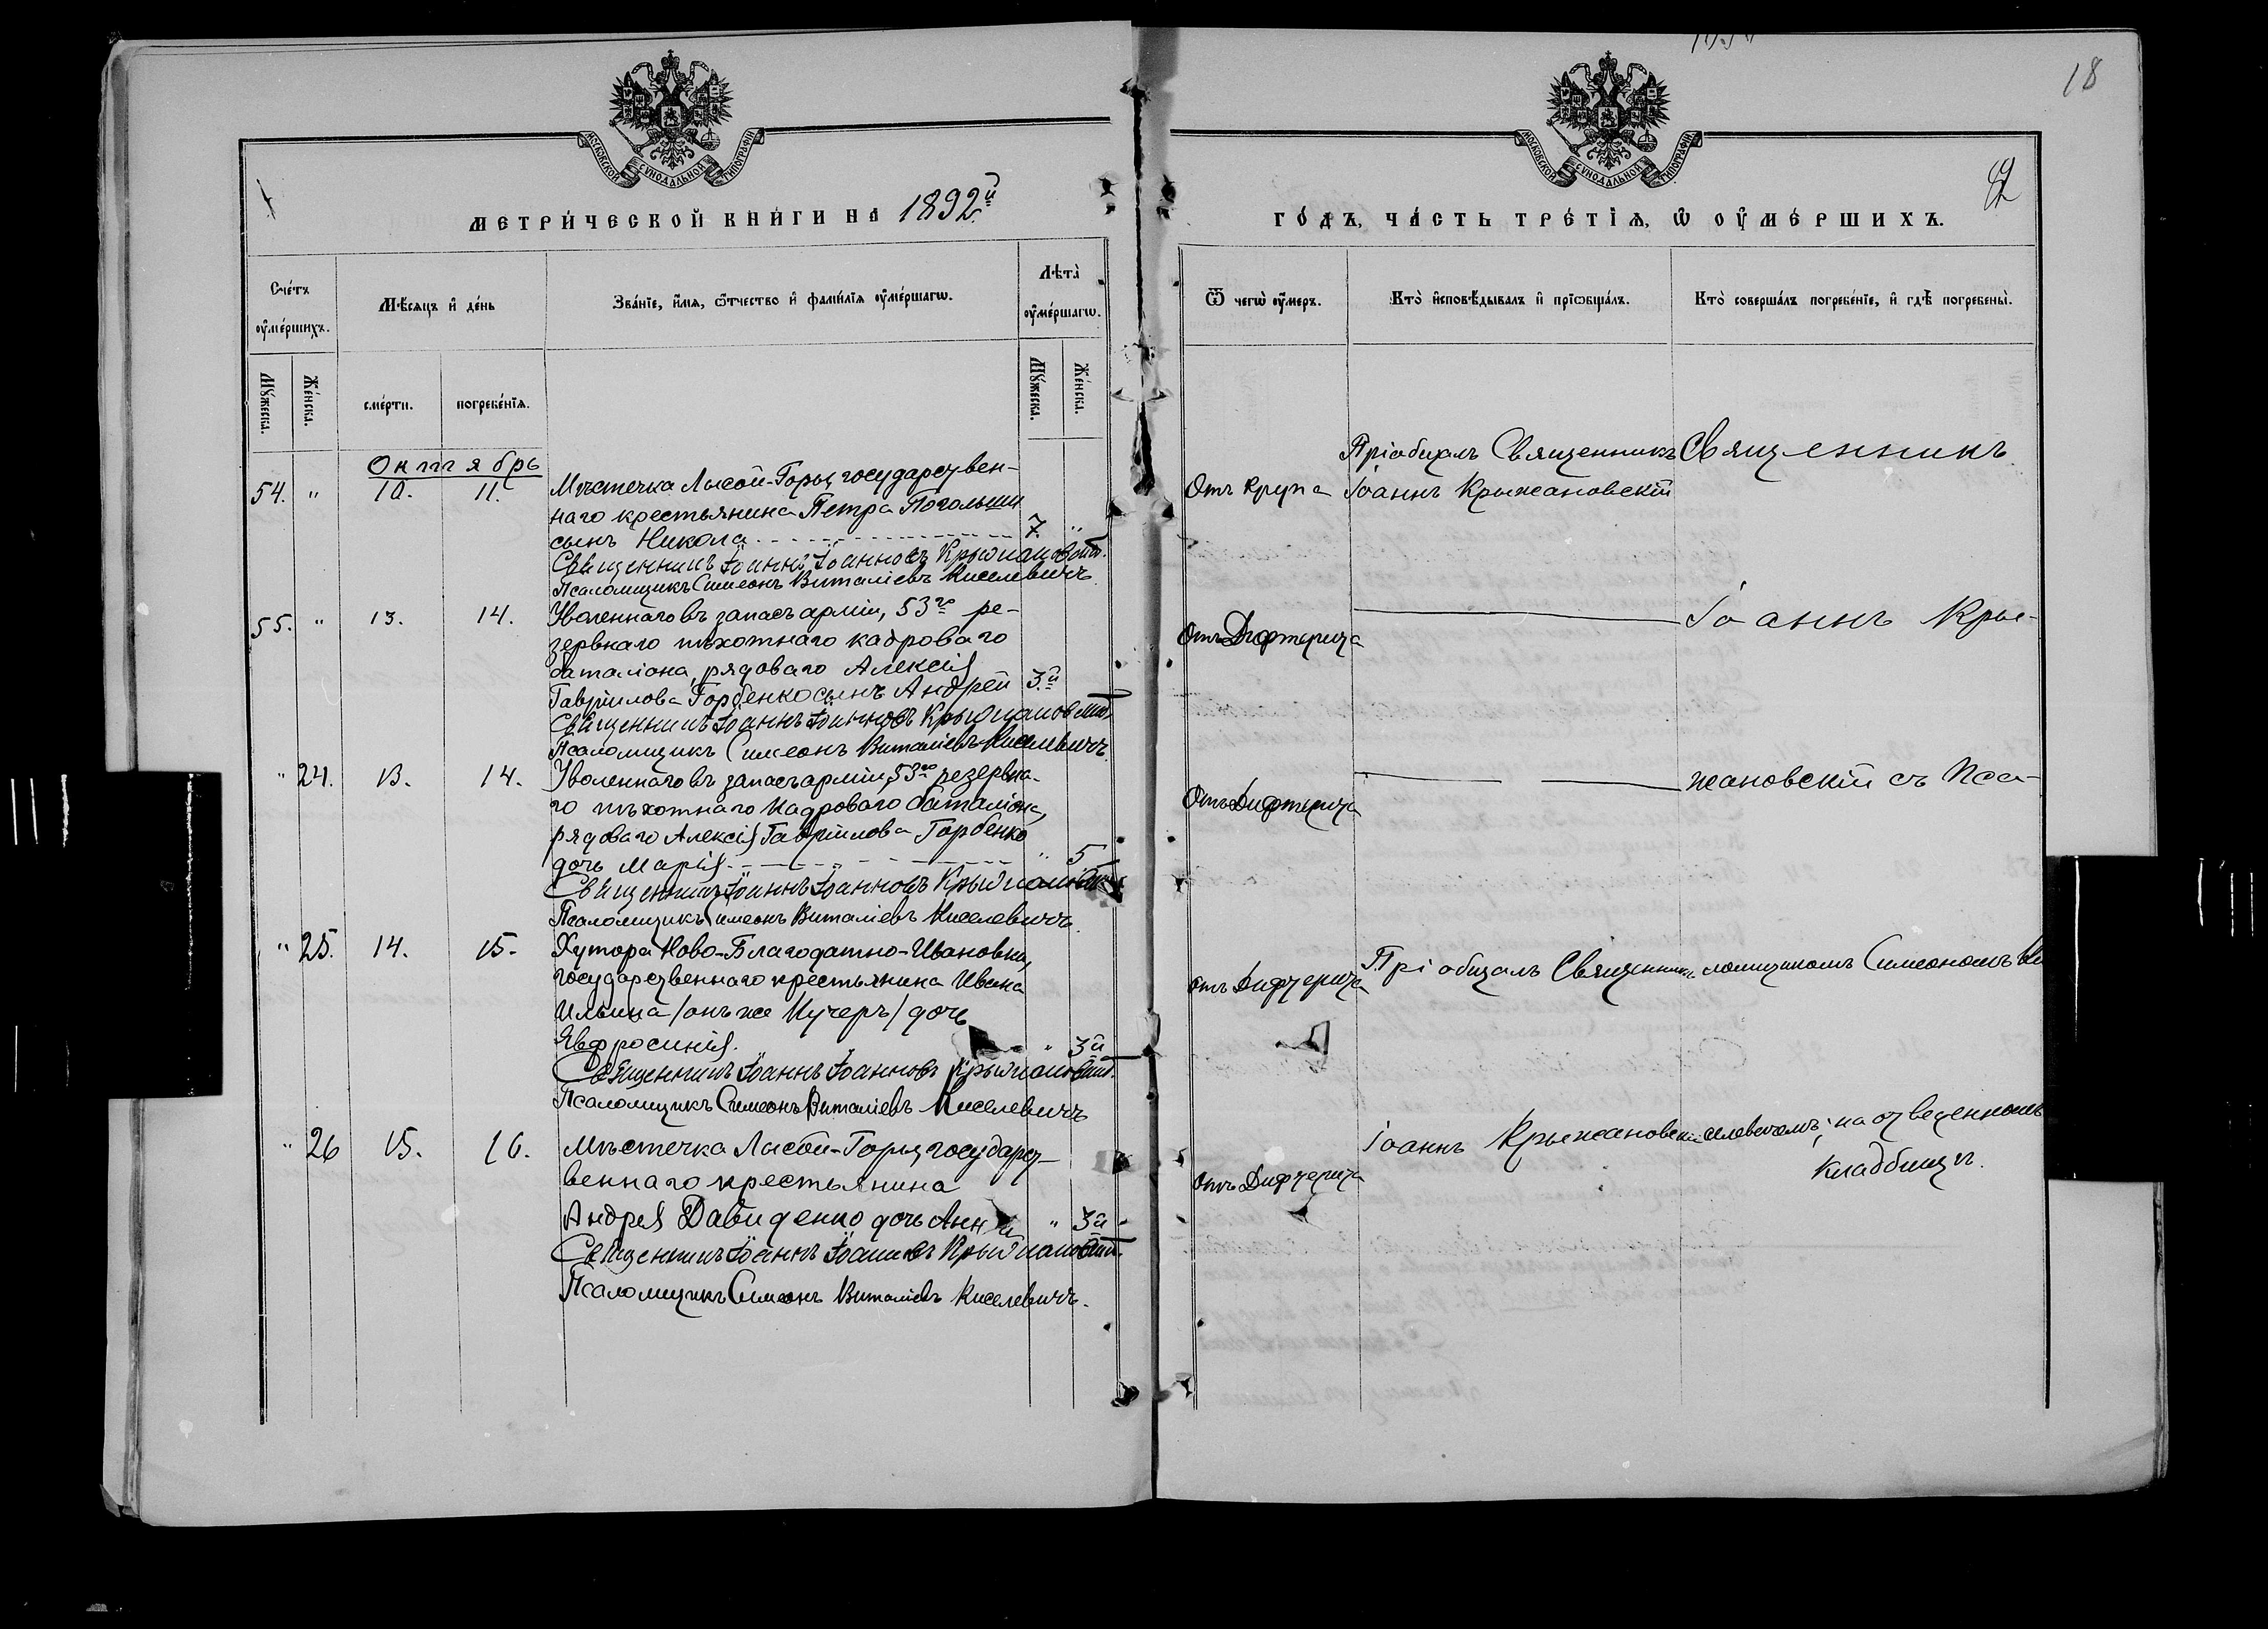 18
МОСКОВСКОЙ СѴНОДАЛЬНОЙ ТИПОГРАФІИ
МОСКОВСКОЙ СѴНОДАЛЬНОЙ ТИПОГРАФІИ
МЕТРИ́ЧЕСКОЙ КНИ́ГИ НА 1892й
ГО́ДЪ, ЧА́СТЬ ТРЕ́ТІѦ, Ѡ ОУ҆МЕ́РШИХЪ.
Счетъ оумершихъ.
Мѣсяцъ и день
Званіе, имя, отчество и фамилія оумершагѡ.
Лѣта оумершагѡ.
Ѿ чегѡ оумеръ.
Кто исповѣдывалъ и пріѡбщалъ.
Кто совершалъ погребеніе, и гдѣ погребены.
Мужеска.
Женска.
смерти.
погребенія.
Мужеска.
Женска.
Октябрь
54. " 10. 11. Мѣстечка Лысой-Горы государствен-
наго крестьянина Петра
сынъ Никола 7. "
Священникъ Іоаннъ Іоанновъ Крыжановскій.
Псаломщикъ Симеонъ Виталіевъ Киселевичъ.
Отъ крупа
Пріобщалъ Священникъ
Іоаннъ Крыжановскій
Священникъ
55. " 13. 14. Уволеннаго въ запасъ арміи, 53го ре-
зервнаго пѣхотнаго кадроваго
баталіона, рядоваго Алексія
Гавріилова Горбенко сынъ Андрей 3.й
Священникъ Іоаннъ Іоанновъ Крыжановскій.
Псаломщикъ Симеонъ Виталіевъ Киселевичъ.
Отъ Дифтерита
Іоаннъ Кры-
" 24. 13. 14. Уволеннаго въ запасъ арміи, 53го резервна-
го пѣхотнаго кадроваго баталіона,
рядоваго Алексія Гавріилова Горбенко
дочь Марія " 5
Священникъ Іоаннъ Іоанновъ Крыжановскій
Псаломщикъ Симеонъ Виталіевъ Киселевичъ.
Отъ Дифтерита
жановскій съ Пса-
" 25. 14. 15. Хутора Ново-Благодатно-Ивановки,
государственнаго крестьянина Ивана
Ильина /онъ же Кучеръ/ дочь
Евфросинія. " 3й
Священникъ Іоаннъ Іоанновъ Крыжановскій.
Псаломщикъ Симеонъ Виталіевъ Киселевичъ
отъ Дифтерита
Пріобщалъ Священникъ
ломщикомъ Симеономъ Ки
" 26 15. 16. Мѣстечка Лысой-Горы, государст-
веннаго крестьянина
Андрея Давиденко дочь Анна " 3й
Священникъ Іоаннъ Іоанновъ Крыжановскій.
Псаломщикъ Симеонъ Виталіевъ Киселевичъ.
отъ Дифтерита
Іоаннъ Крыжановскій
селевичемъ; на отведенномъ
кладбищѣ.